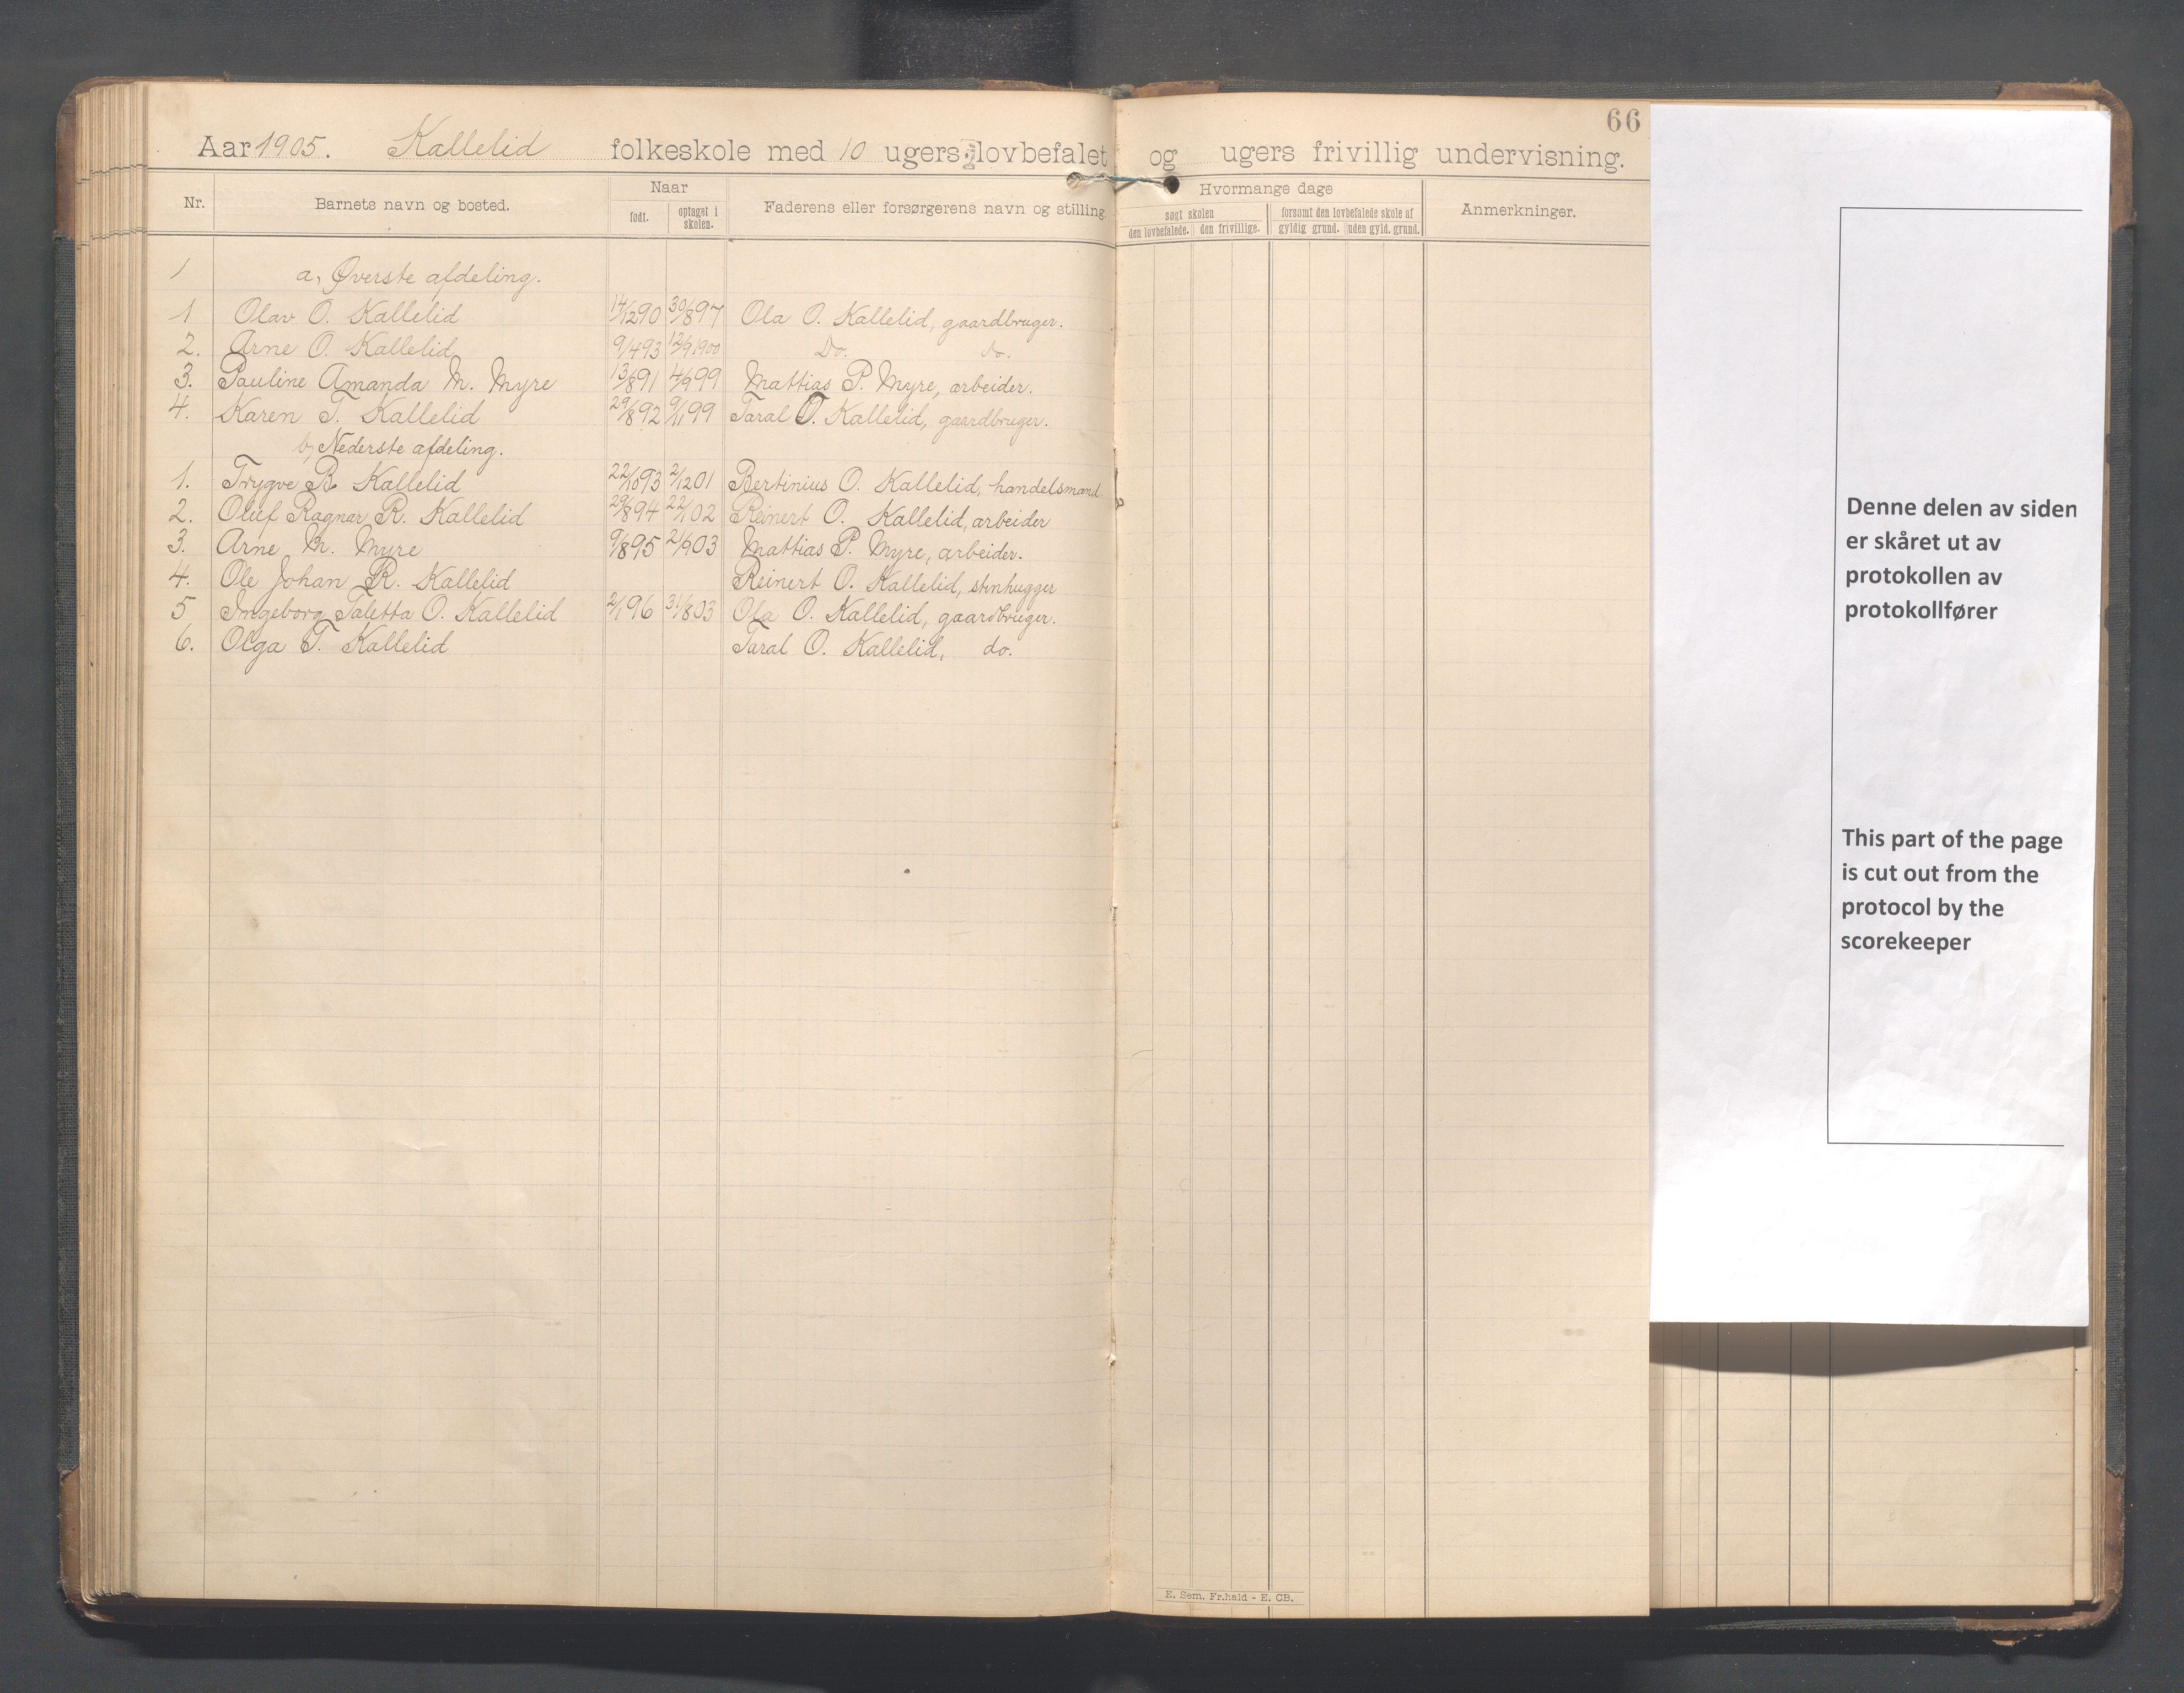 66
Aar 1905. Kallelid folkeskole med 10 ugers lovbefalet og ugers frivillig undervisning.
Nr. Barnets navn og bosted. Naar født. optaget i skolen. Faderens eller forsørgerens navn og stilling. Hvormange dage søgt skolen den lovbefalede. den frivillige. forsømt den lovbefalede skole af gyldig grund. uden gyld. grund. Anmerkninger.
1 a, Øverste afdeling.
1 Olav O. Kallelid 14/12 90 30/8 97 Ola O. Kallelid, gaardbruger.
2. Arne O. Kallelid 9/4 93 12/9 1900 Do. do.
3. Pauline Amanda M. Myre 13/8 91 4/9 99 Mattias P. Myre, arbeider.
4. Karen T. Kallelid 29/8 92 9/11 99 Taral O. Kallelid, gaardbruger.
b, Nederste afdeling.
1. Trygve B. Kallelid 22/10 93 2/12 01 Bertinius O. Kallelid, handelsmand
2. Oluf Ragnar R. Kallelid 29/8 94 22/1 02 Reinert O. Kallelid, arbeider
3. Arne M. Myre 9/8 95 21/9 03 Mattias P. Myre, arbeider.
4. Ole Johan R. Kallelid Reinert O. Kallelid, stenhugger
5 Ingeborg Taletta O. Kallelid 2/1 96 31/8 03 Ola O. Kallelid, gaardbruger.
6. Olga T. Kallelid Taral O. Kallelid, do.
E. Sem, Fr.hald - E. CB.
Denne delen av siden
er skåret ut av
protokollen av
protokollfører
This part of the page
is cut out from the
protocol by the
scorekeeper